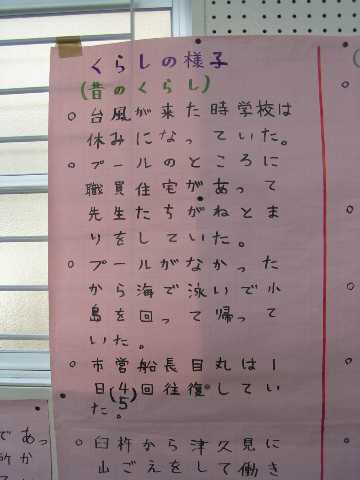 くらしの様子
(昔のくらし)
○台風が来た時学校は
休みになっていた。
○プールのところに
職員住宅があって
先生たちがねとま
りをしていた。
○プールがなかった
から海で泳いで小
島を回って帰って
いた。
○市営船長目丸は1
日4回往復してい
(5)
た。
○臼杵から津久見に
山ごえをして働き
であっ